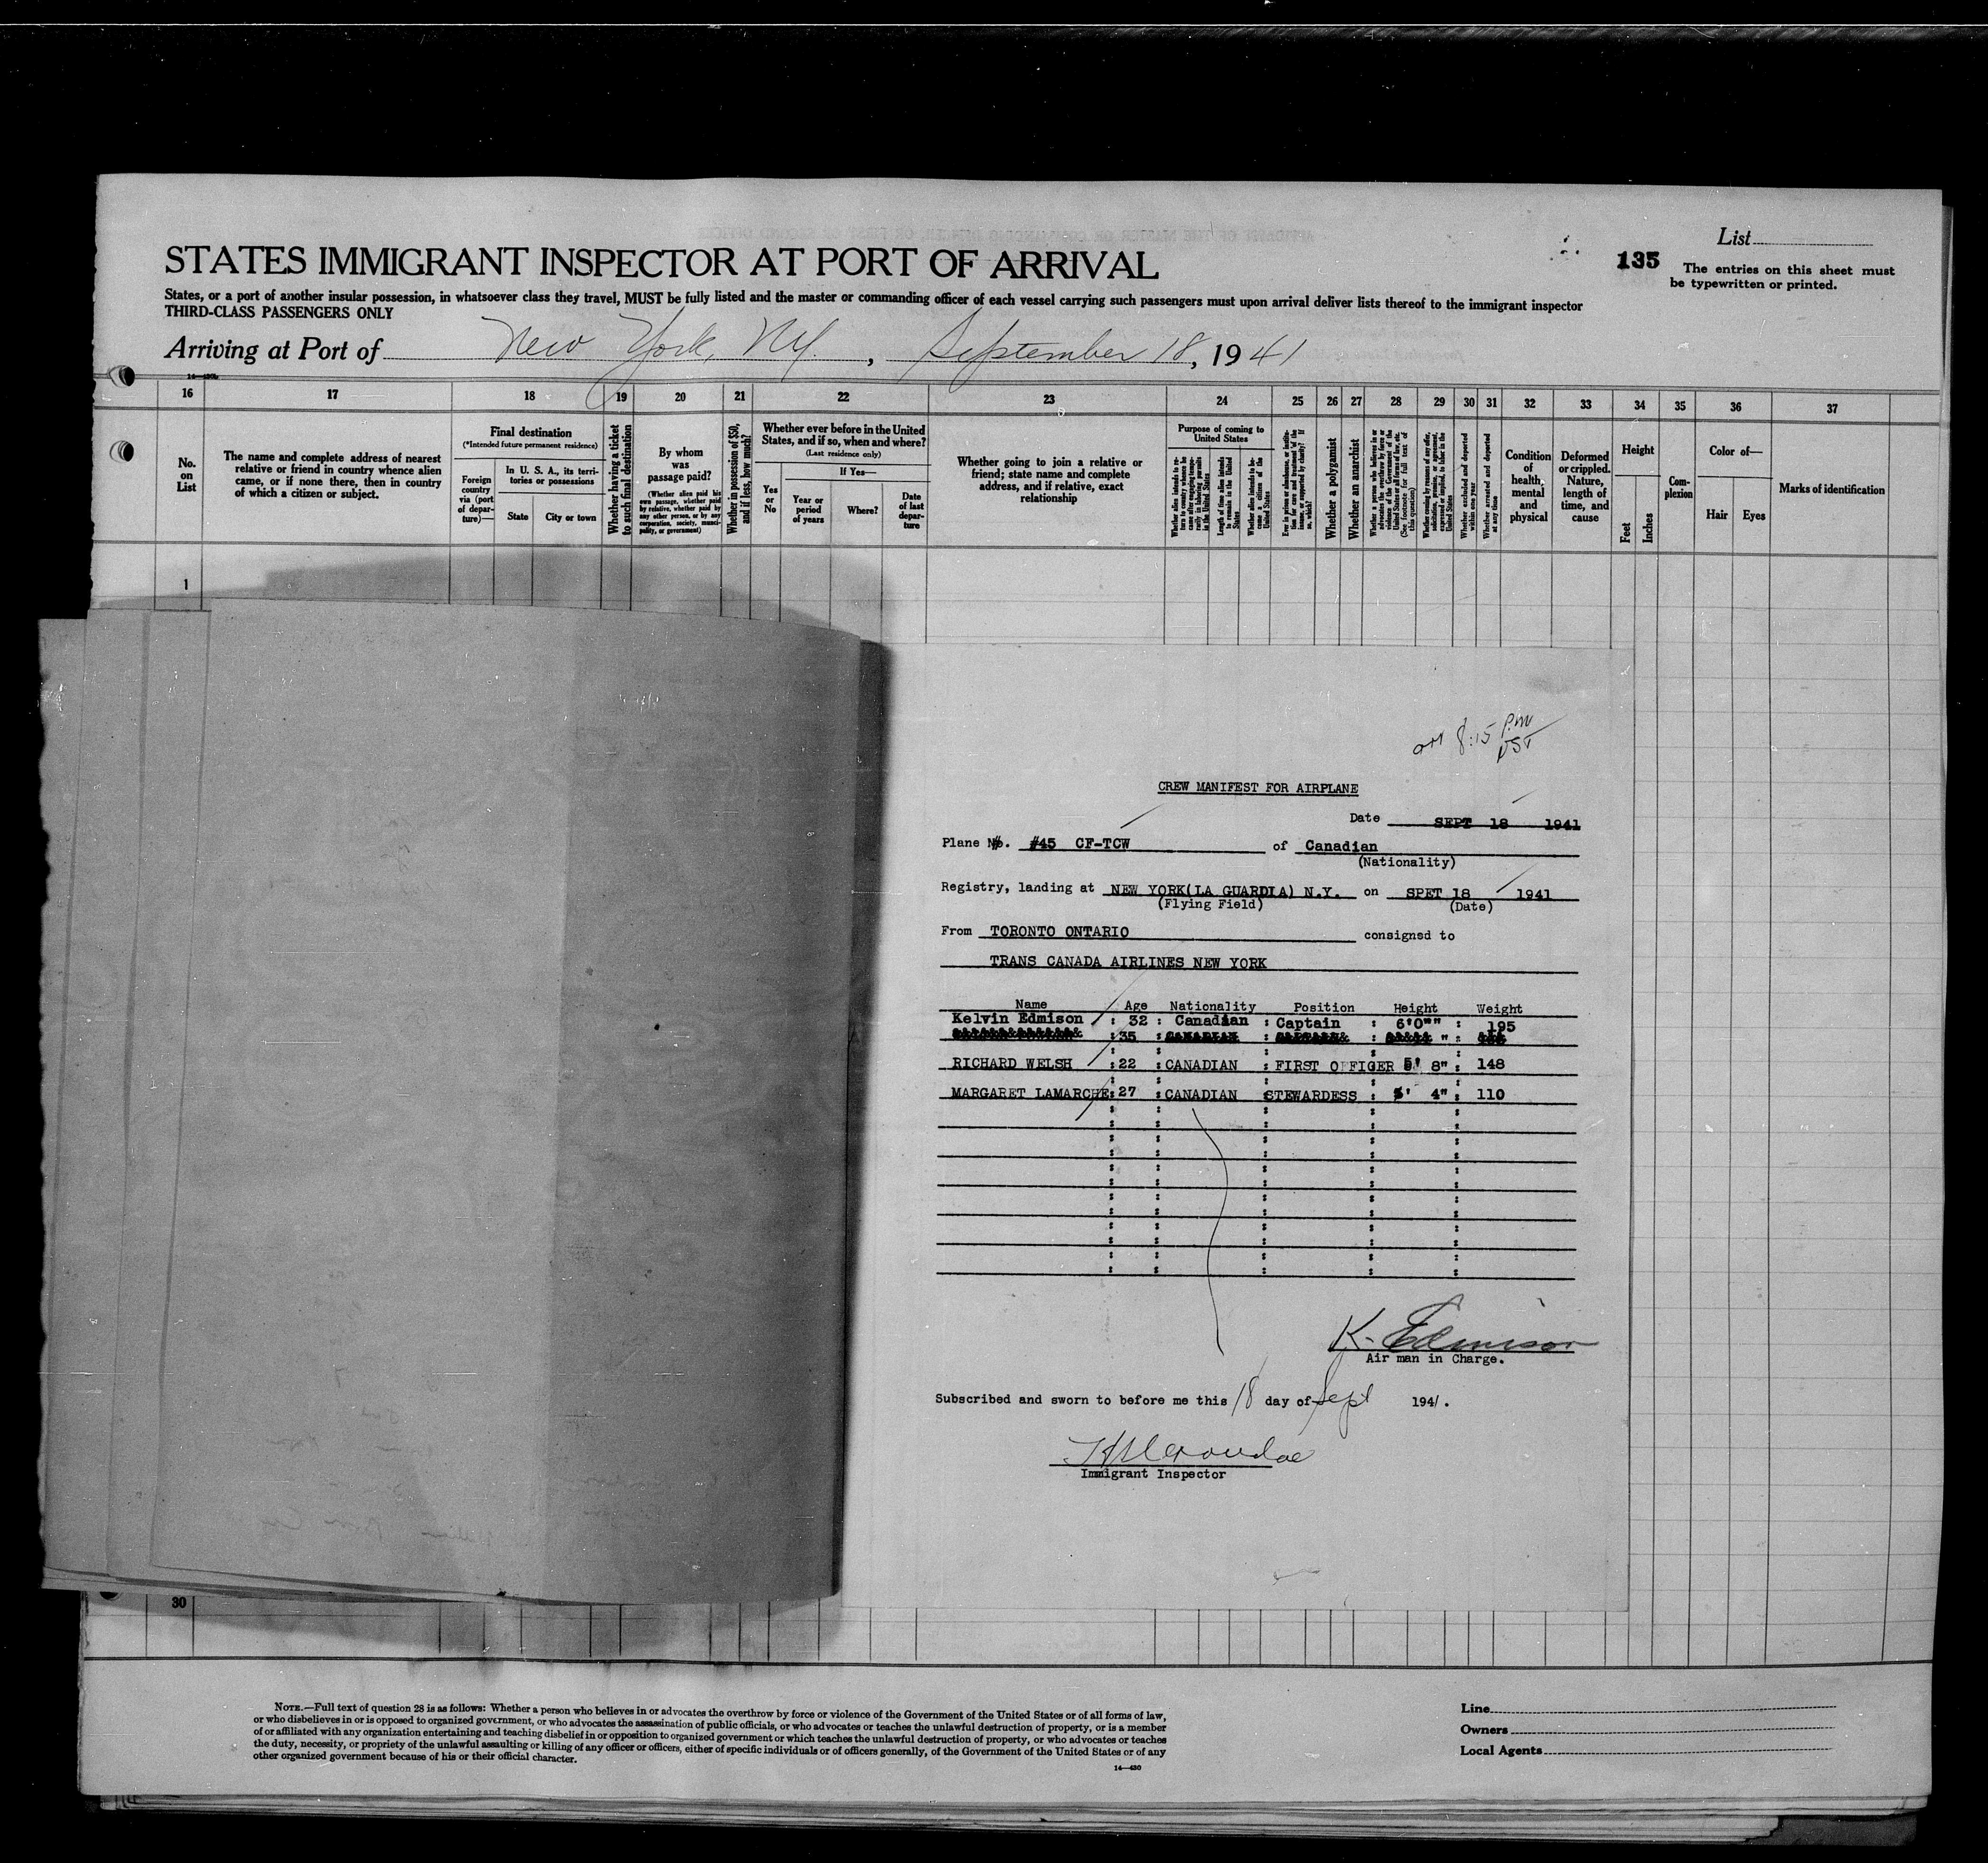 List
135
The entries on this sheet must
be typewritten or printed.
STATES IMMIGRANT INSPECTOR AT PORT OF ARRIVAL
States, or a port of another insular possession, in whatsoever class they travel, MUST be fully listed and the master or commanding officer of each vessel carrying such passengers must upon arrival deliver lists thereof to the immigrant inspector
THIRD-CLASS PASSENGERS ONLY
Arriving at Port of New York, NY. , September 18, 1941
16 17 18 19 20 21 22 23 24 25 26 27 28 29 30 31 32 33 34 35 36 37
No.
on
List
The name and complete address of nearest
relative or friend in country whence alien
came, or if none there, then in country
of which a citizen or subject.
Final destination
(*Intended future permanent residence)
Foreign
country
via (port
of depar-
ture)—
In U. S. A., its terri-
tories or possessions
State
City or town
Whether having a ticket
to such final destination
By whom
was
passage paid?
(Whether alien paid his
own passage, whether paid
by relative, whether paid by
any other person, or by any
corporation, society, munici-
pality, or government)
Whether in possession of $50,
and if less, how much?
Whether ever before in the United
States, and if so, when and where?
(Last residence only)
Yes
or
No
If Yes—
Year or
period
of years
Where?
Date
of last
depar-
ture
Whether going to join a relative or
friend; state name and complete
address, and if relative, exact
relationship
Purpose of coming to
United States
Length of time alien intends
to remain in the United
States
Whether alien intends to be-
come a citizen of the
United States
Whether a polygamist
Whether an anarchist
Whether excluded and deported
within one year
Whether arrested and deported
at any time
Condition
of
health,
mental
and
physical
Deformed
or crippled.
Nature,
length of
time, and
cause
Height
Feet
Inches
Com-
plexion
Color of—
Hair
Eyes
Marks of identification
1
8:15 PM
CREW MANIFEST FOR AIRPLANE
Date SEPT 18 1941
Plane No. #45 CF-TCW of Canadian
(Nationality)
Registry, landing at NEW YORK(LA GUARDIA) N.Y. on SPET 18 1941
(Flying Field) (Date)
From TORONTO ONTARIO consigned to
TRANS CANADA AIRLINES NEW YORK
Name Age Nationality Position Height Weight
Kelvin Edmison : 32 : Canadian : Captain : 6'0"" : 195
:35
RICHARD WELSH :22 :CANADIAN : FIRST OFFICER 5' 8": 148
MARGARET LAMARCHE:27 :CANADIAN :STEWARDESS : 5' 4": 110
K. Edmison
Air man in Charge.
Subscribed and sworn to before me this 18 day of Sept 1941.
Immigrant Inspector
30
NOTE.—Full text of question 28 is as follows: Whether a person who believes in or advocates the overthrow by force or violence of the Government of the United States or of all forms of law,
or who disbelieves in or is opposed to organized government, or who advocates the assassination of public officials, or who advocates or teaches the unlawful destruction of property, or is a member
of or affiliated with any organization entertaining and teaching disbelief in or opposition to organized government or which teaches the unlawful destruction of property, or who advocates or teaches
the duty, necessity, or propriety of the unlawful assaulting or killing of any officer or officers, either of specific individuals or of officers generally, of the Government of the United States or of any
other organized government because of his or their official character.
14—430
Line
Owners
Local Agents